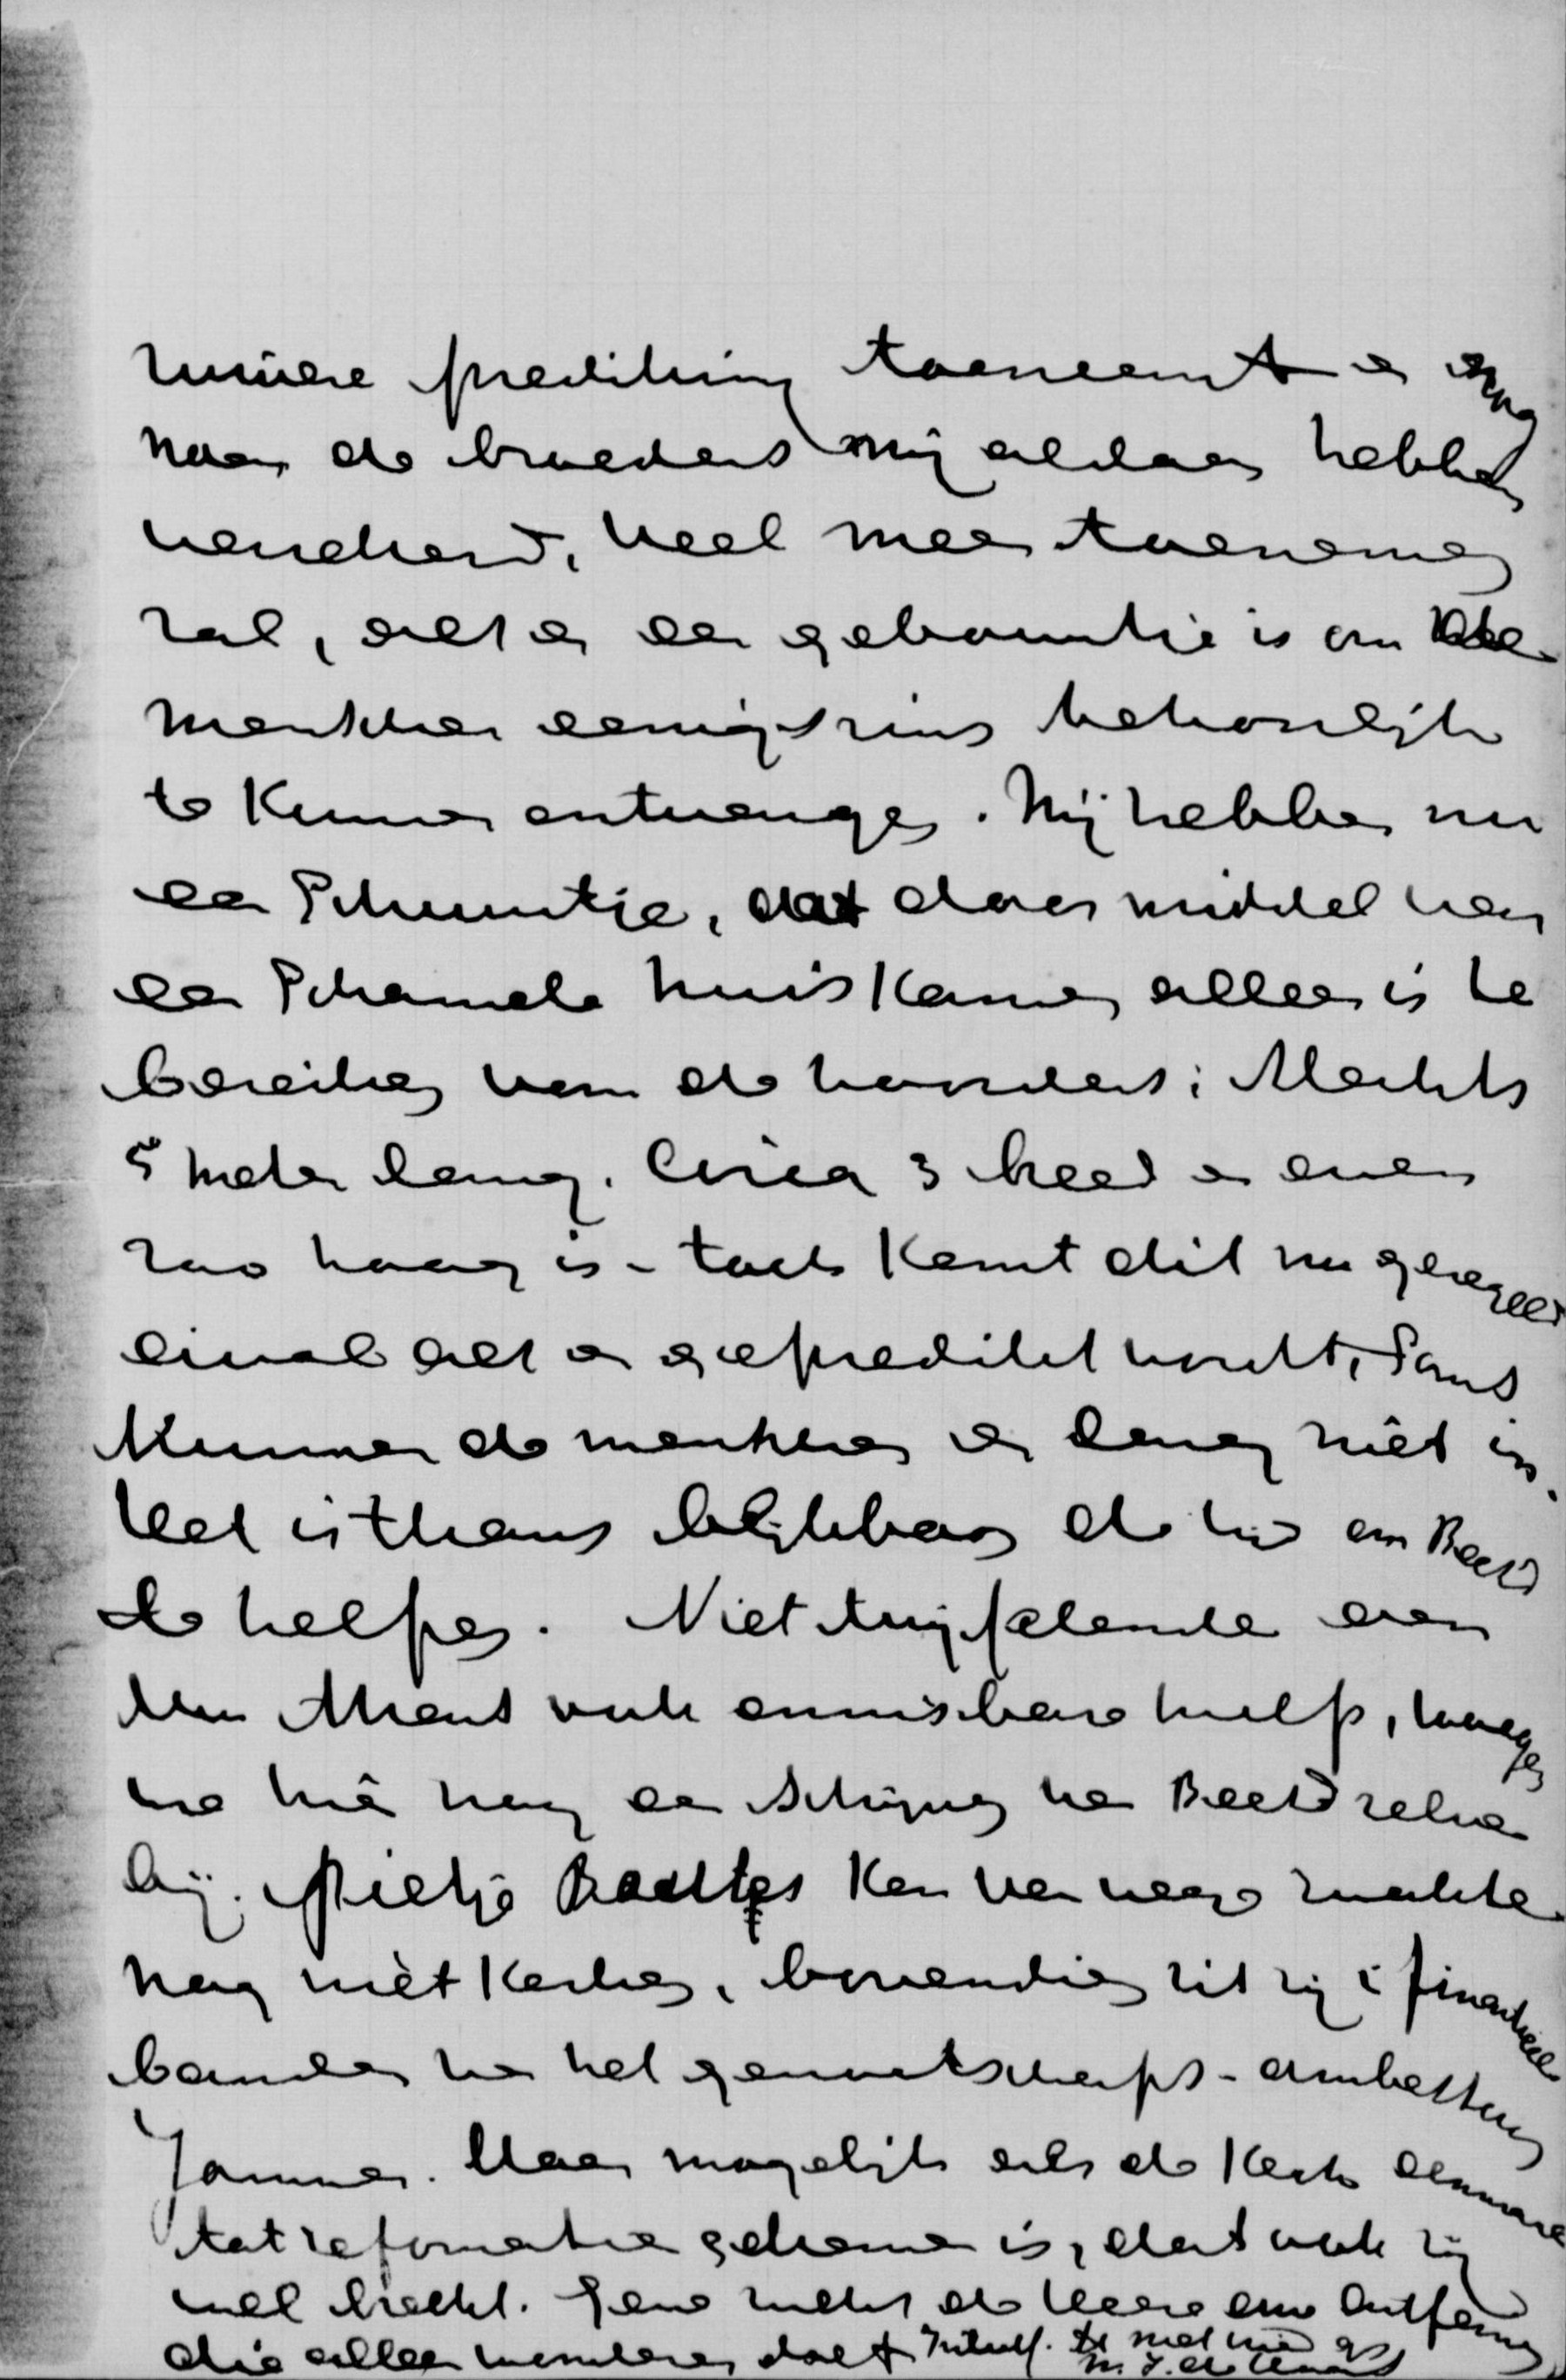 zuivere prediking toeneemt en nog
naar de broeders mij aldaar hebben
verzekerd, veel meer toenemen
zal, als er een gebouwtje is om de
menschen eenigszins behoorlijk
te kunnen ontvangen. Wij hebben nu
een schuurtje, dat door middel van
een schamele huiskamer alleen is te
bereiken van de : slechts
5 meter lang, circa 3 breed en even
zoo hoog is - toch komt dit nu geregeld
eivol als er gepredikt wordt, soms
kunnen de menschen er lang niet in.
Het is thans blijkbaar de tijd om Beets
te helpen. Niet twijfelende aan
Uw Athens ook onmisbare hulp, voegen
we hier nog een schrijven van Beets zelve
bij. Sietje kan vanwege zwakte
nog niet kerken, bovendien zit zij in financieele
banden van het genootschaps-
Jammer. Maar mogelijk als de kerk eenmaal
tot reformatie gekomen is, dat ook zij
wel breekt. Geve de Heere eene ontferming
die alleen wonderen doet